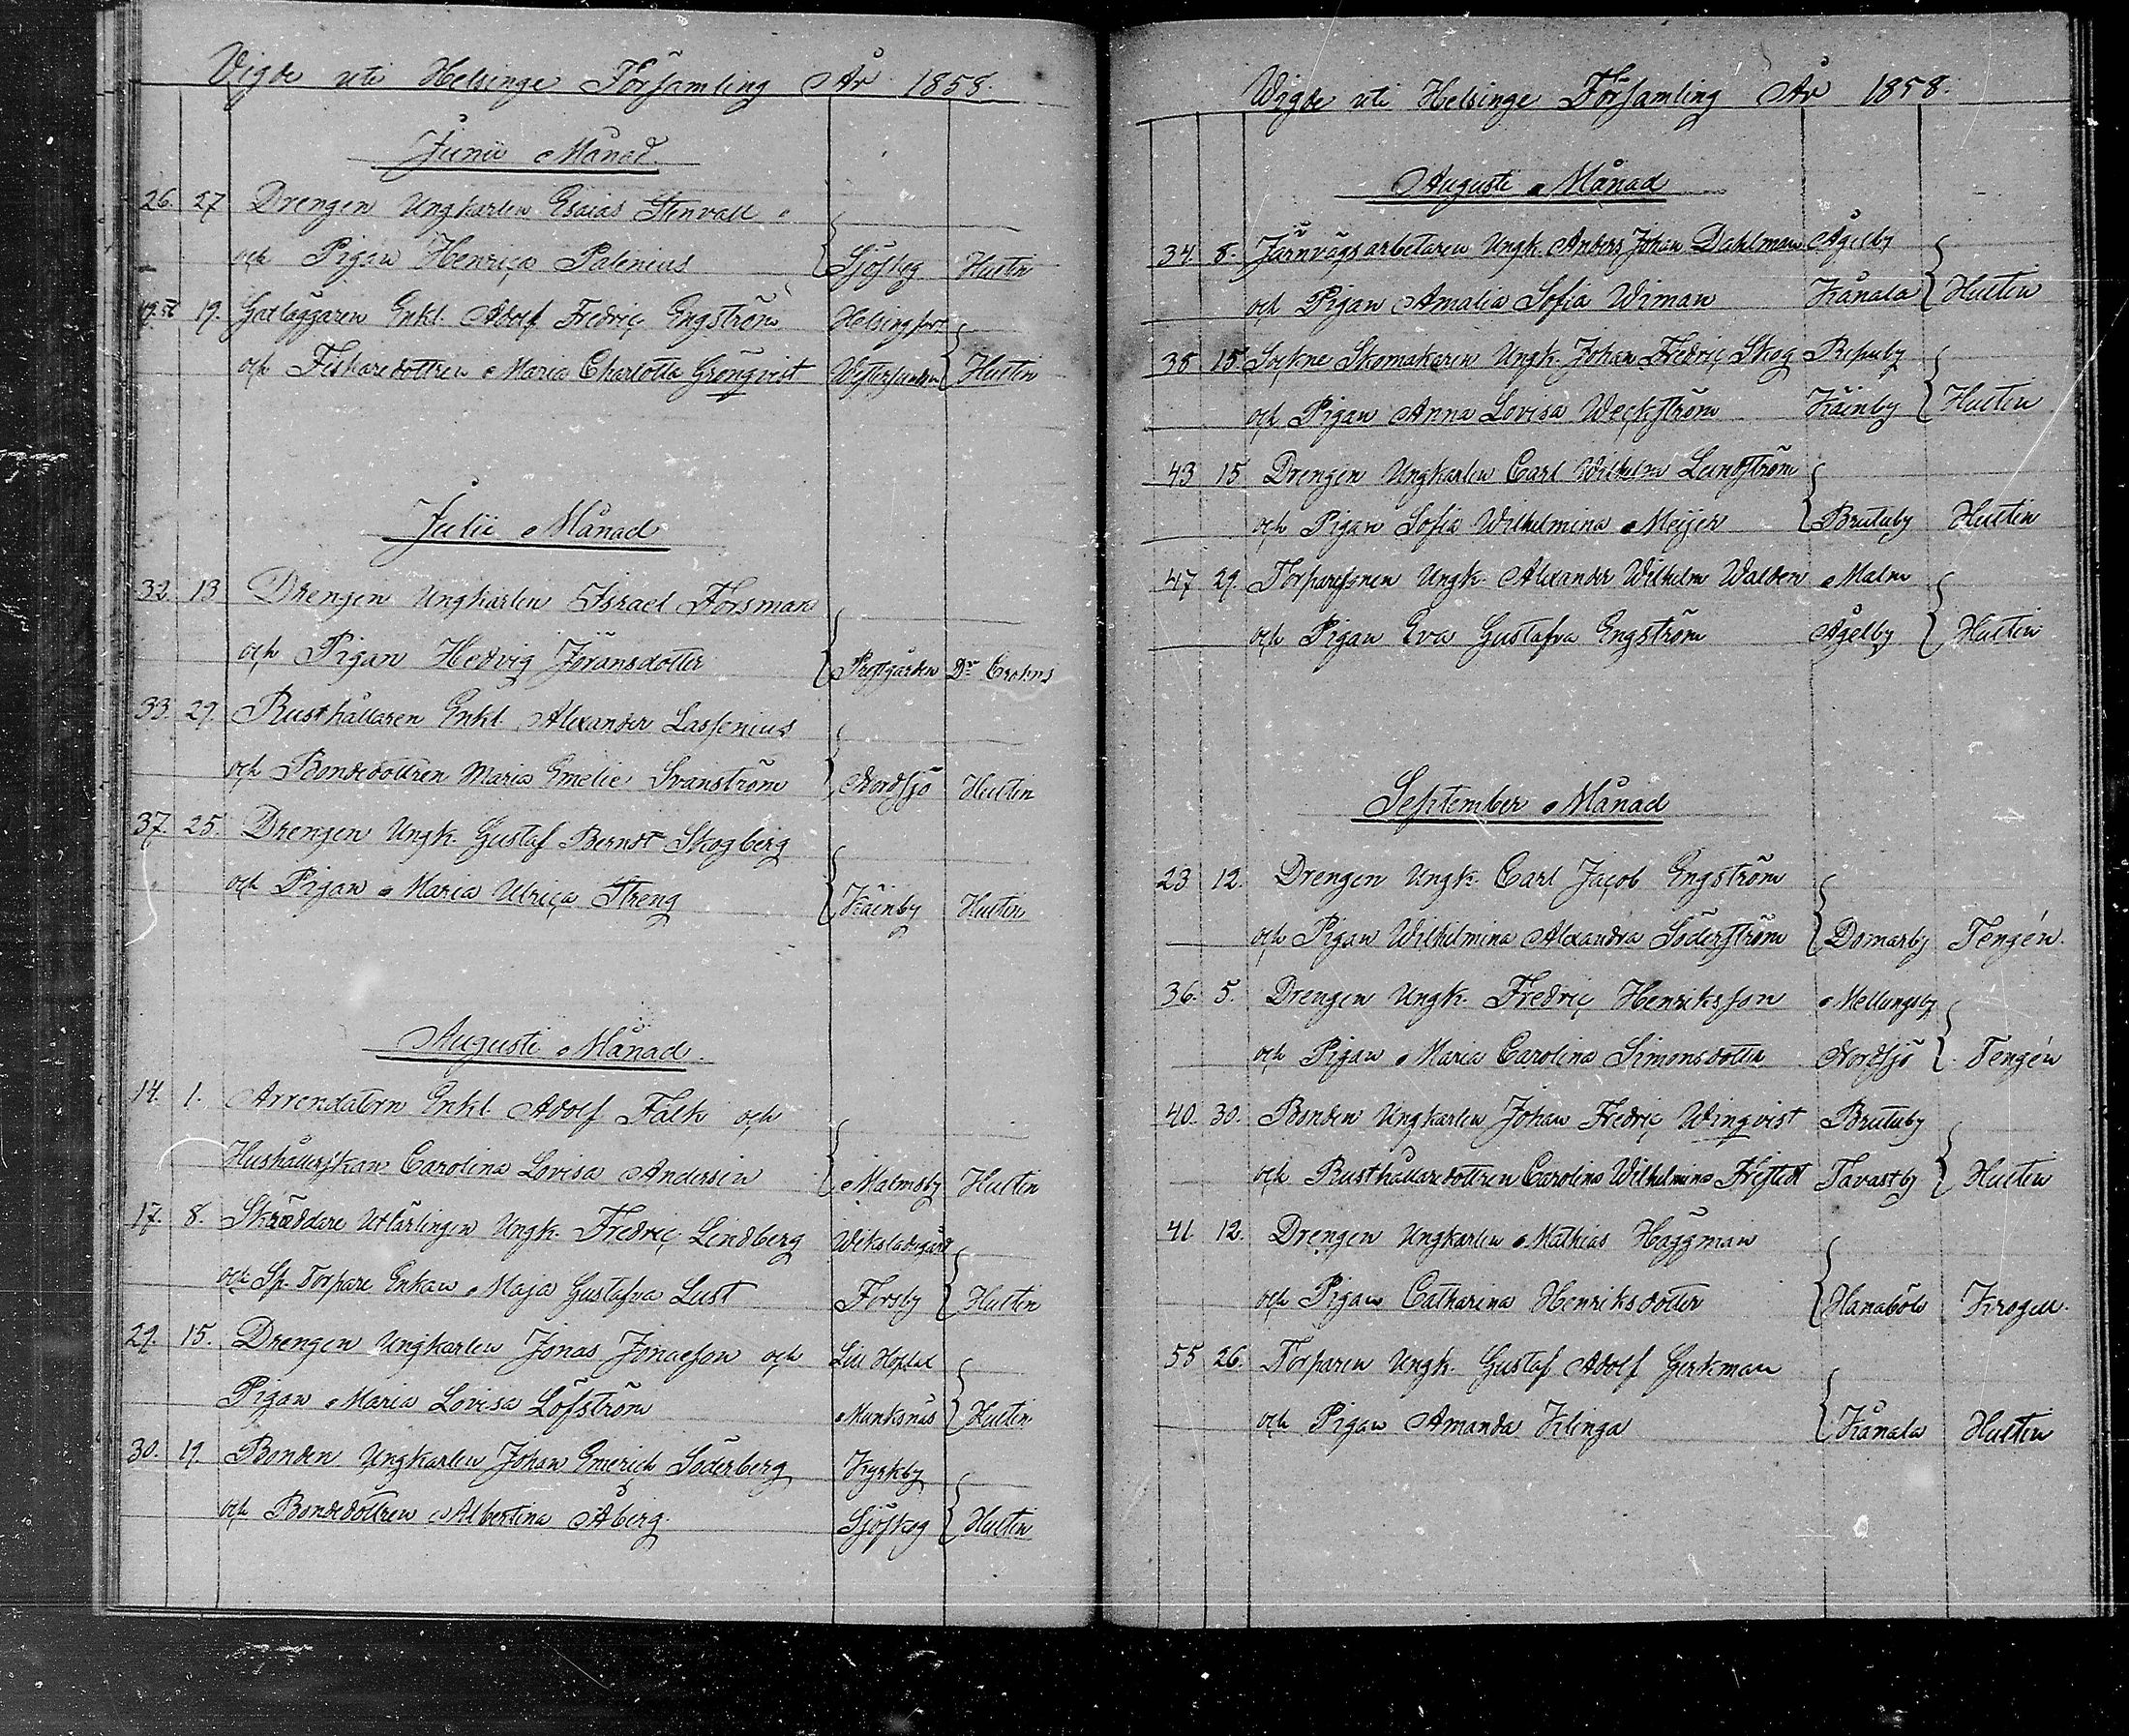 Vigde uti Helsinge Församling År 1858.
Junii Månad.
26. 27 Drengen Ungkarlen Esaias Stenvall
och Pigan Henrica Palenius Sjöskog Hultin
19. Gatläggaren Enkl. Adolf Fredric Engström Helsingfors
och Fiskaredottren Maria Charlotta Grönqvist Hultin
Julii Månad
32. 13 Drengen Ungkarlen Israel Forsman
och Pigan Hedvig Jöransdotter Prostgården Dr Crohns
33. 29. Rusthållaren Enkl. Alexander Lassenius
och Bondedottren Maria Emelie Svanström Nordsjö Hultin
37. 25. Drengen Ungk. Gustaf Bernst Skogberg
och Pigan Maria Ulrica Streng Käinby Hultin
Augusti Månad.
14. 1. Arrendatorn Enkl. Adolf Falk och
Hushållerskan Carolina Lovisa Andersin Malmsby Hultin
17. 8. Skräddare Utlärlingen Ungk. Fredric Lindberg
och Sp. Torpare Enkan Maja Gustafva Lust Forsby Hultin
29. 15. Drengen Ungkarlen Jonas Jonasson och Lill Hoplaks
Pigan Maria Lovisa Löfström Munksnäs Hultin
30. 19. Bonden Ungkarlen Johan Emerich Söderberg Kyrkby
och Bondedottren Albertina Åberg. Sjöskog Hultin
Wigde uti Helsinge Församling År 1858.
Augusti Månad
34. 8. Järnvägsarbetaren Ungk. Anders Johan Dahlman Ågelby
och Pigan Amalia Sofia Wiman Kånala Hultin
38 15. Sockne Skomakaren Ungk. Johan Fredric Skog Repuby
och Pigan Anna Lovisa Weckström Käinby Hultin
43 15 Drengen Ungkarlen Carl Wilhelm Lundström
och Pigan Sofia Wilhelmina Meijer Brutuby Hultin
47 29. Torparesonen Ungk. Alexander Wilhelm Walden Malm
och Pigan Eva Gustafva Engström Ågelby Hultin
September Månad
23 12. Drengen Ungk. Carl Jacob Engström
och Pigan Wilhelmina Alexandra Söderström Domarby Tengén.
36. 5. Drengen Ungk. Fredric Henriksson Mellungsby
och Pigan Maria Carolina Simonsdotter Nordsjö Tengén
40. 30. Bonden Ungkarlen Johan Fredric Winqvist Brutuby
och Rusthållaredottren Carolina Wilhelmina Tavastby Hultin
41 12. Drengen Ungkarlen Mathias Häggman
och Pigan Catharina Henriksdotter Hanaböle Krogell.
55 26. Torparen Ungk. Gustaf Adolf Gerkman
och Pigan Amanda Klinga Kånala Hultin